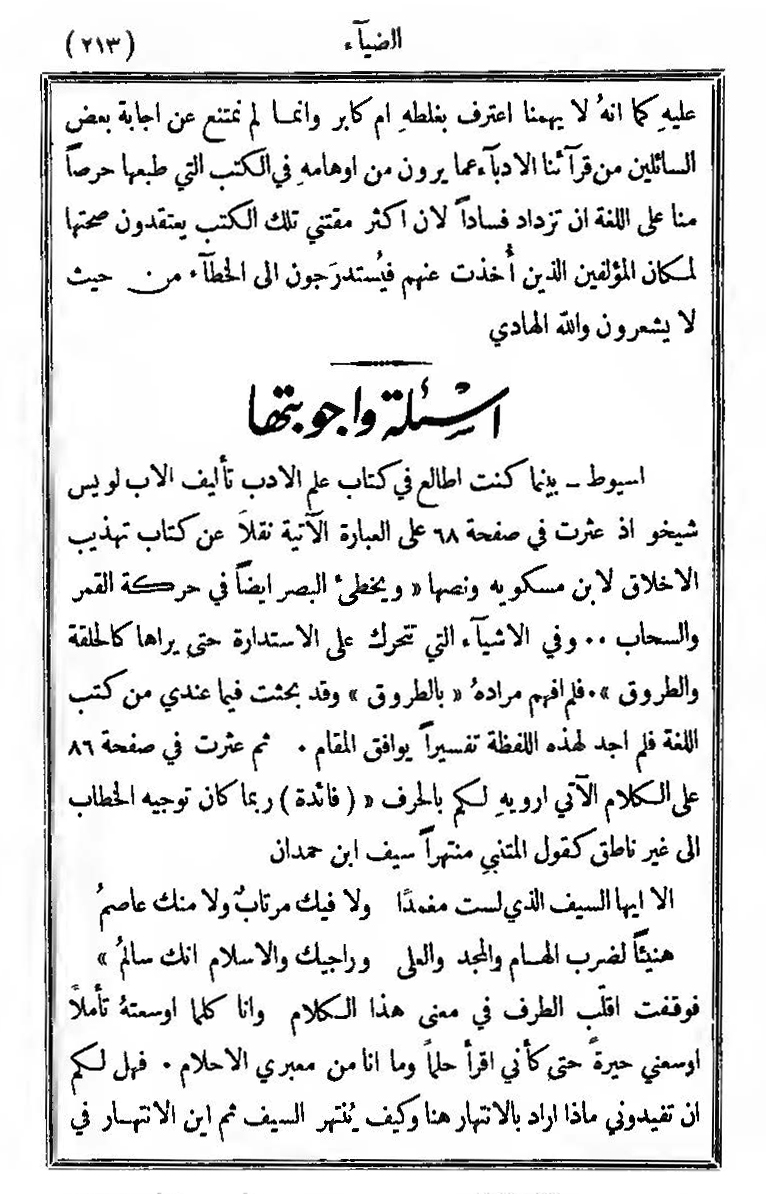 الضيآء
(٢١٣)
عليهِ كما انهُ لا يهمنا اعترف بغلطهِ ام كابر وانما لم نمتنع عن اجابة بعض
السائلين من قرآئنا الادبآء عما يرون من اوهامهِ في الكتب التي طبعها حرصاً
منا على اللغة ان تزداد فساداً لان اكثر مقتني تلك الكتب يعتقدون صحتها
لمكان المؤلفين الذين أُخذت عنهم فيُستدرَجون الى الخطآء من حيث
لا يشعرون والله الهادي
اسئلة واجوبتها
اسيوط – بينما كنت اطالع في كتاب علم الادب تأليف الاب لويس
شيخو اذ عثرت في صفحة ٦٨ على العبارة الآتية نقلاً عن كتاب تهذيب
الاخلاق لابن مسكويه ونصها « ويخطئ البصر ايضاً في حركة القمر
والسحاب ٠٠ وفي الاشيآء التي تتحرك على الاستدارة حتى يراها كالحلقة
والطروق »٠ فلم افهم مرادهُ « بالطروق » وقد بحثت فيما عندي من كتب
اللغة فلم اجد لهذه اللفظة تفسيراً يوافق المقام ٠ ثم عثرت في صفحة ٨٦
على الكلام الآتي ارويهِ لكم بالحرف « ( فائدة ) ربما كان توجيه الخطاب
الى غير ناطق كقول المتنبي منتهراً سيف ابن حمدان
الا ايها السيف الذي لست مغمدًا ولا فيك مرتابٌ ولا منك عاصمُ
هنيئاً لضرب الهام والمجد والعلى وراجيك والاسلام انك سالمُ »
فوقفت اقلّب الطرف في معنى هذا الكلام وانا كلما اوسعتهُ تأملاً
اوسعني حيرةً حتى كأني اقرأ حلماً وما انا من معبري الاحلام ٠ فهل لكم
ان تفيدوني ماذا اراد بالانتهار هنا وكيف يُنتهر السيف ثم اين الانتهار في